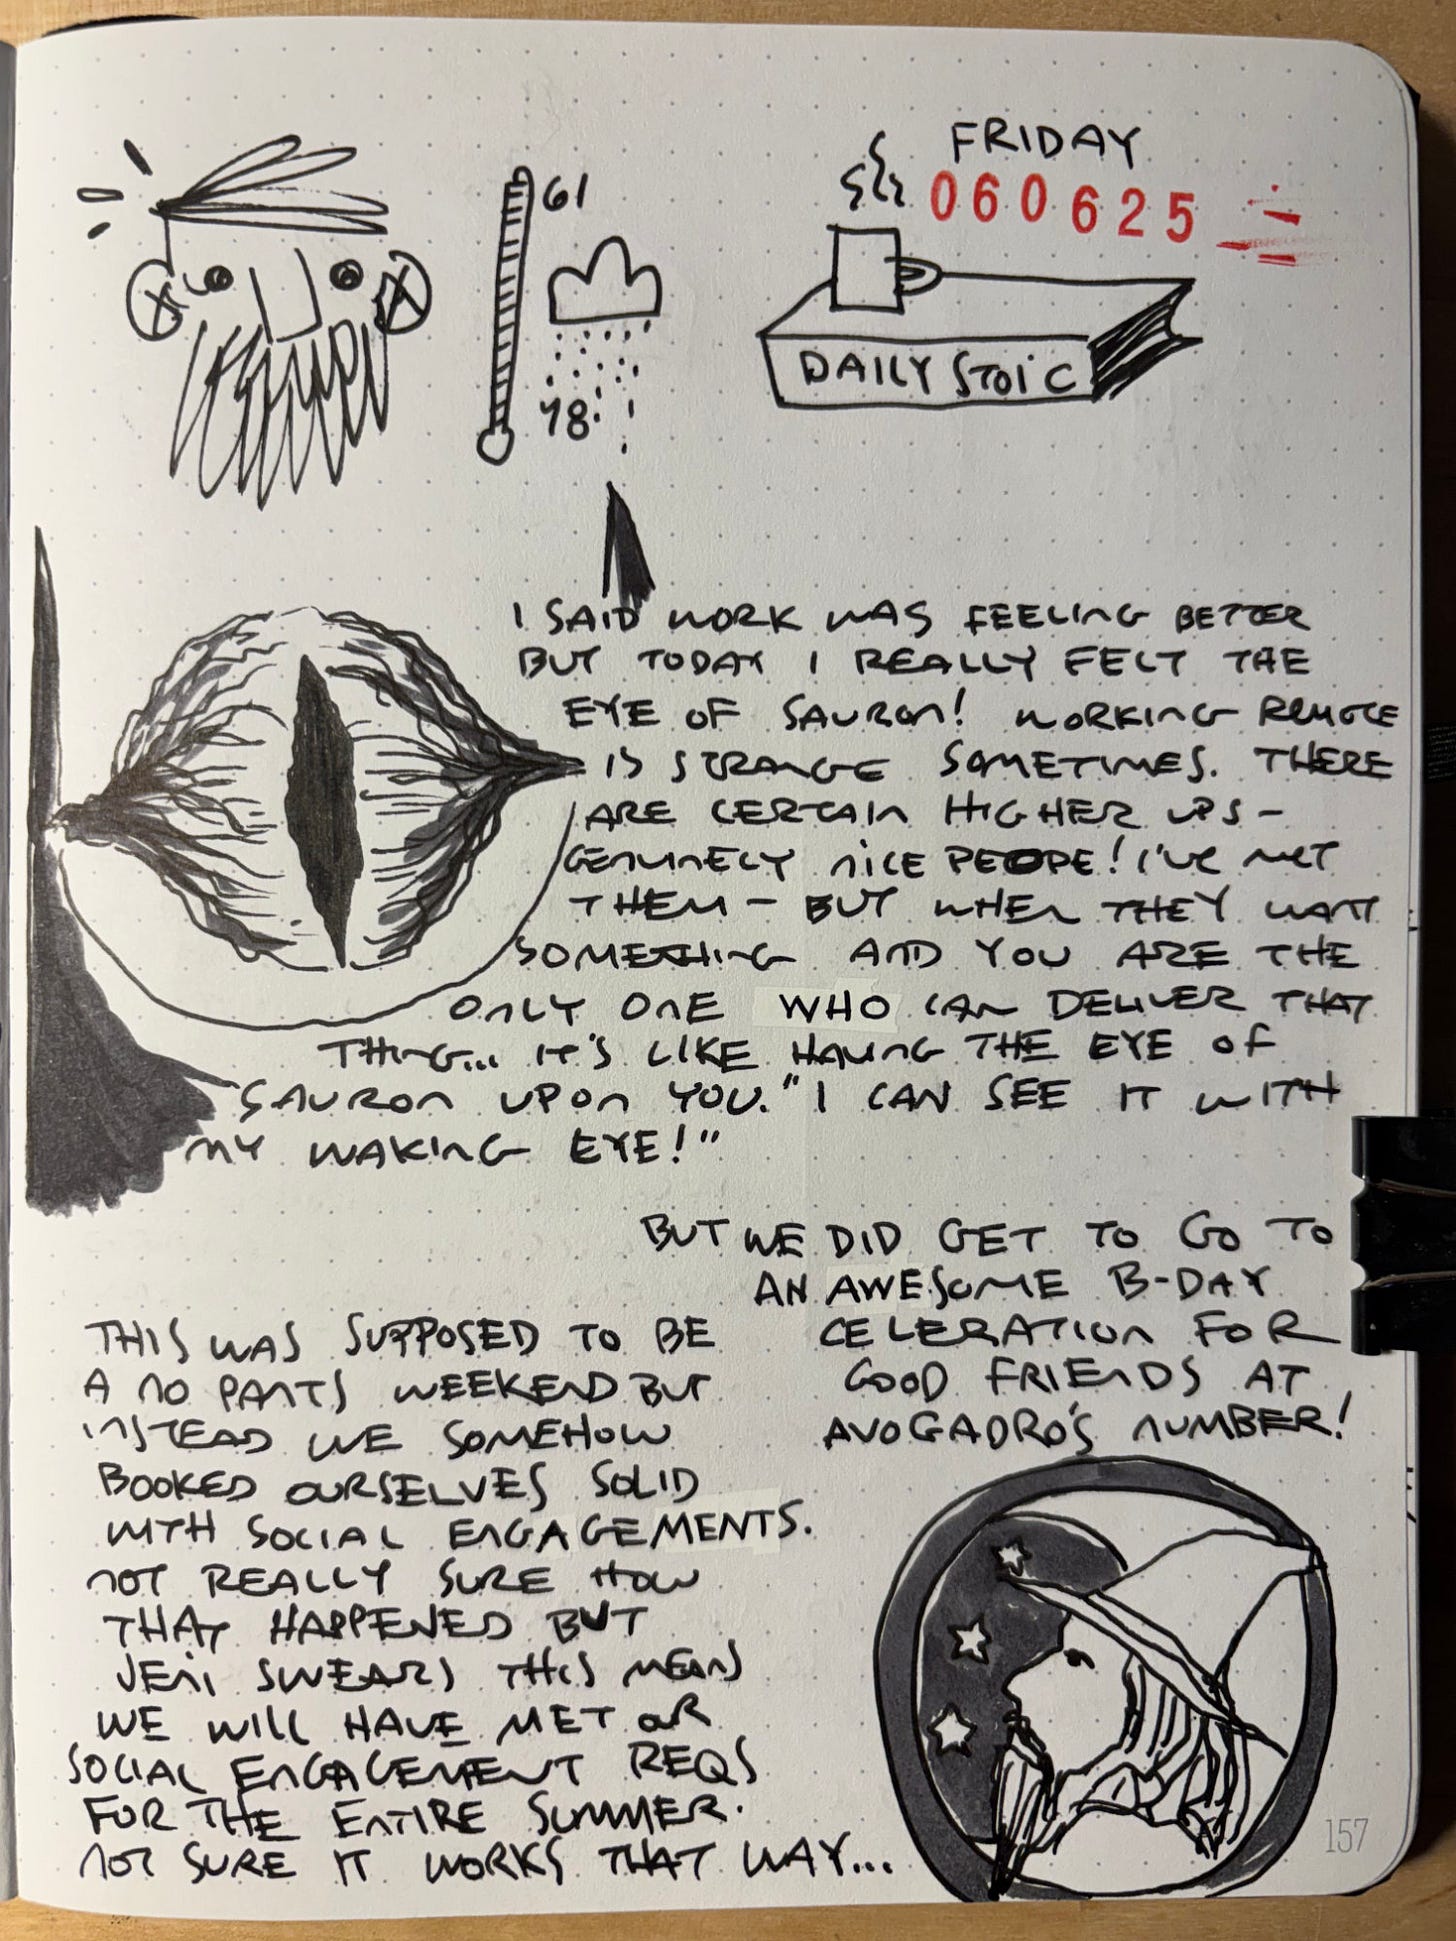 FRIDAY
060625
61
48
DAILY STOIC
I SAID WORK WAS FEELING BETTER
BUT TODAY I REALLY FELT THE
EYE OF SAURON! WORKING REMOTE
IS STRANGE SOMETIMES. THERE
ARE CERTAIN HIGHER UPS -
GENUINELY NICE PEOPE! I'VE MET
THEM - BUT WHEN THEY WANT
SOMETHING AND YOU ARE THE
ONLY ONE WHO CAN DELIVER THAT
THING... IT'S LIKE HAVING THE EYE OF
SAURON UPON YOU. "I CAN SEE IT WITH
MY WAKING EYE!"
BUT WE DID GET TO GO TO
AN AWESOME B-DAY
CELERATION FOR
GOOD FRIENDS AT
AVOGADRO'S NUMBER!
THIS WAS SUPPOSED TO BE
A NO PANTS WEEKEND BUT
INSTEAD WE SOMEHOW
BOOKED OURSELVES SOLID
WITH SOCIAL ENGAGEMENTS.
NOT REALLY SURE HOW
THAT HAPPENED BUT
JENI SWEARS THIS MEANS
WE WILL HAVE MET OUR
SOCIAL ENGAGEMENT REQS
FOR THE ENTIRE SUMMER.
NOT SURE IT WORKS THAT WAY...
157